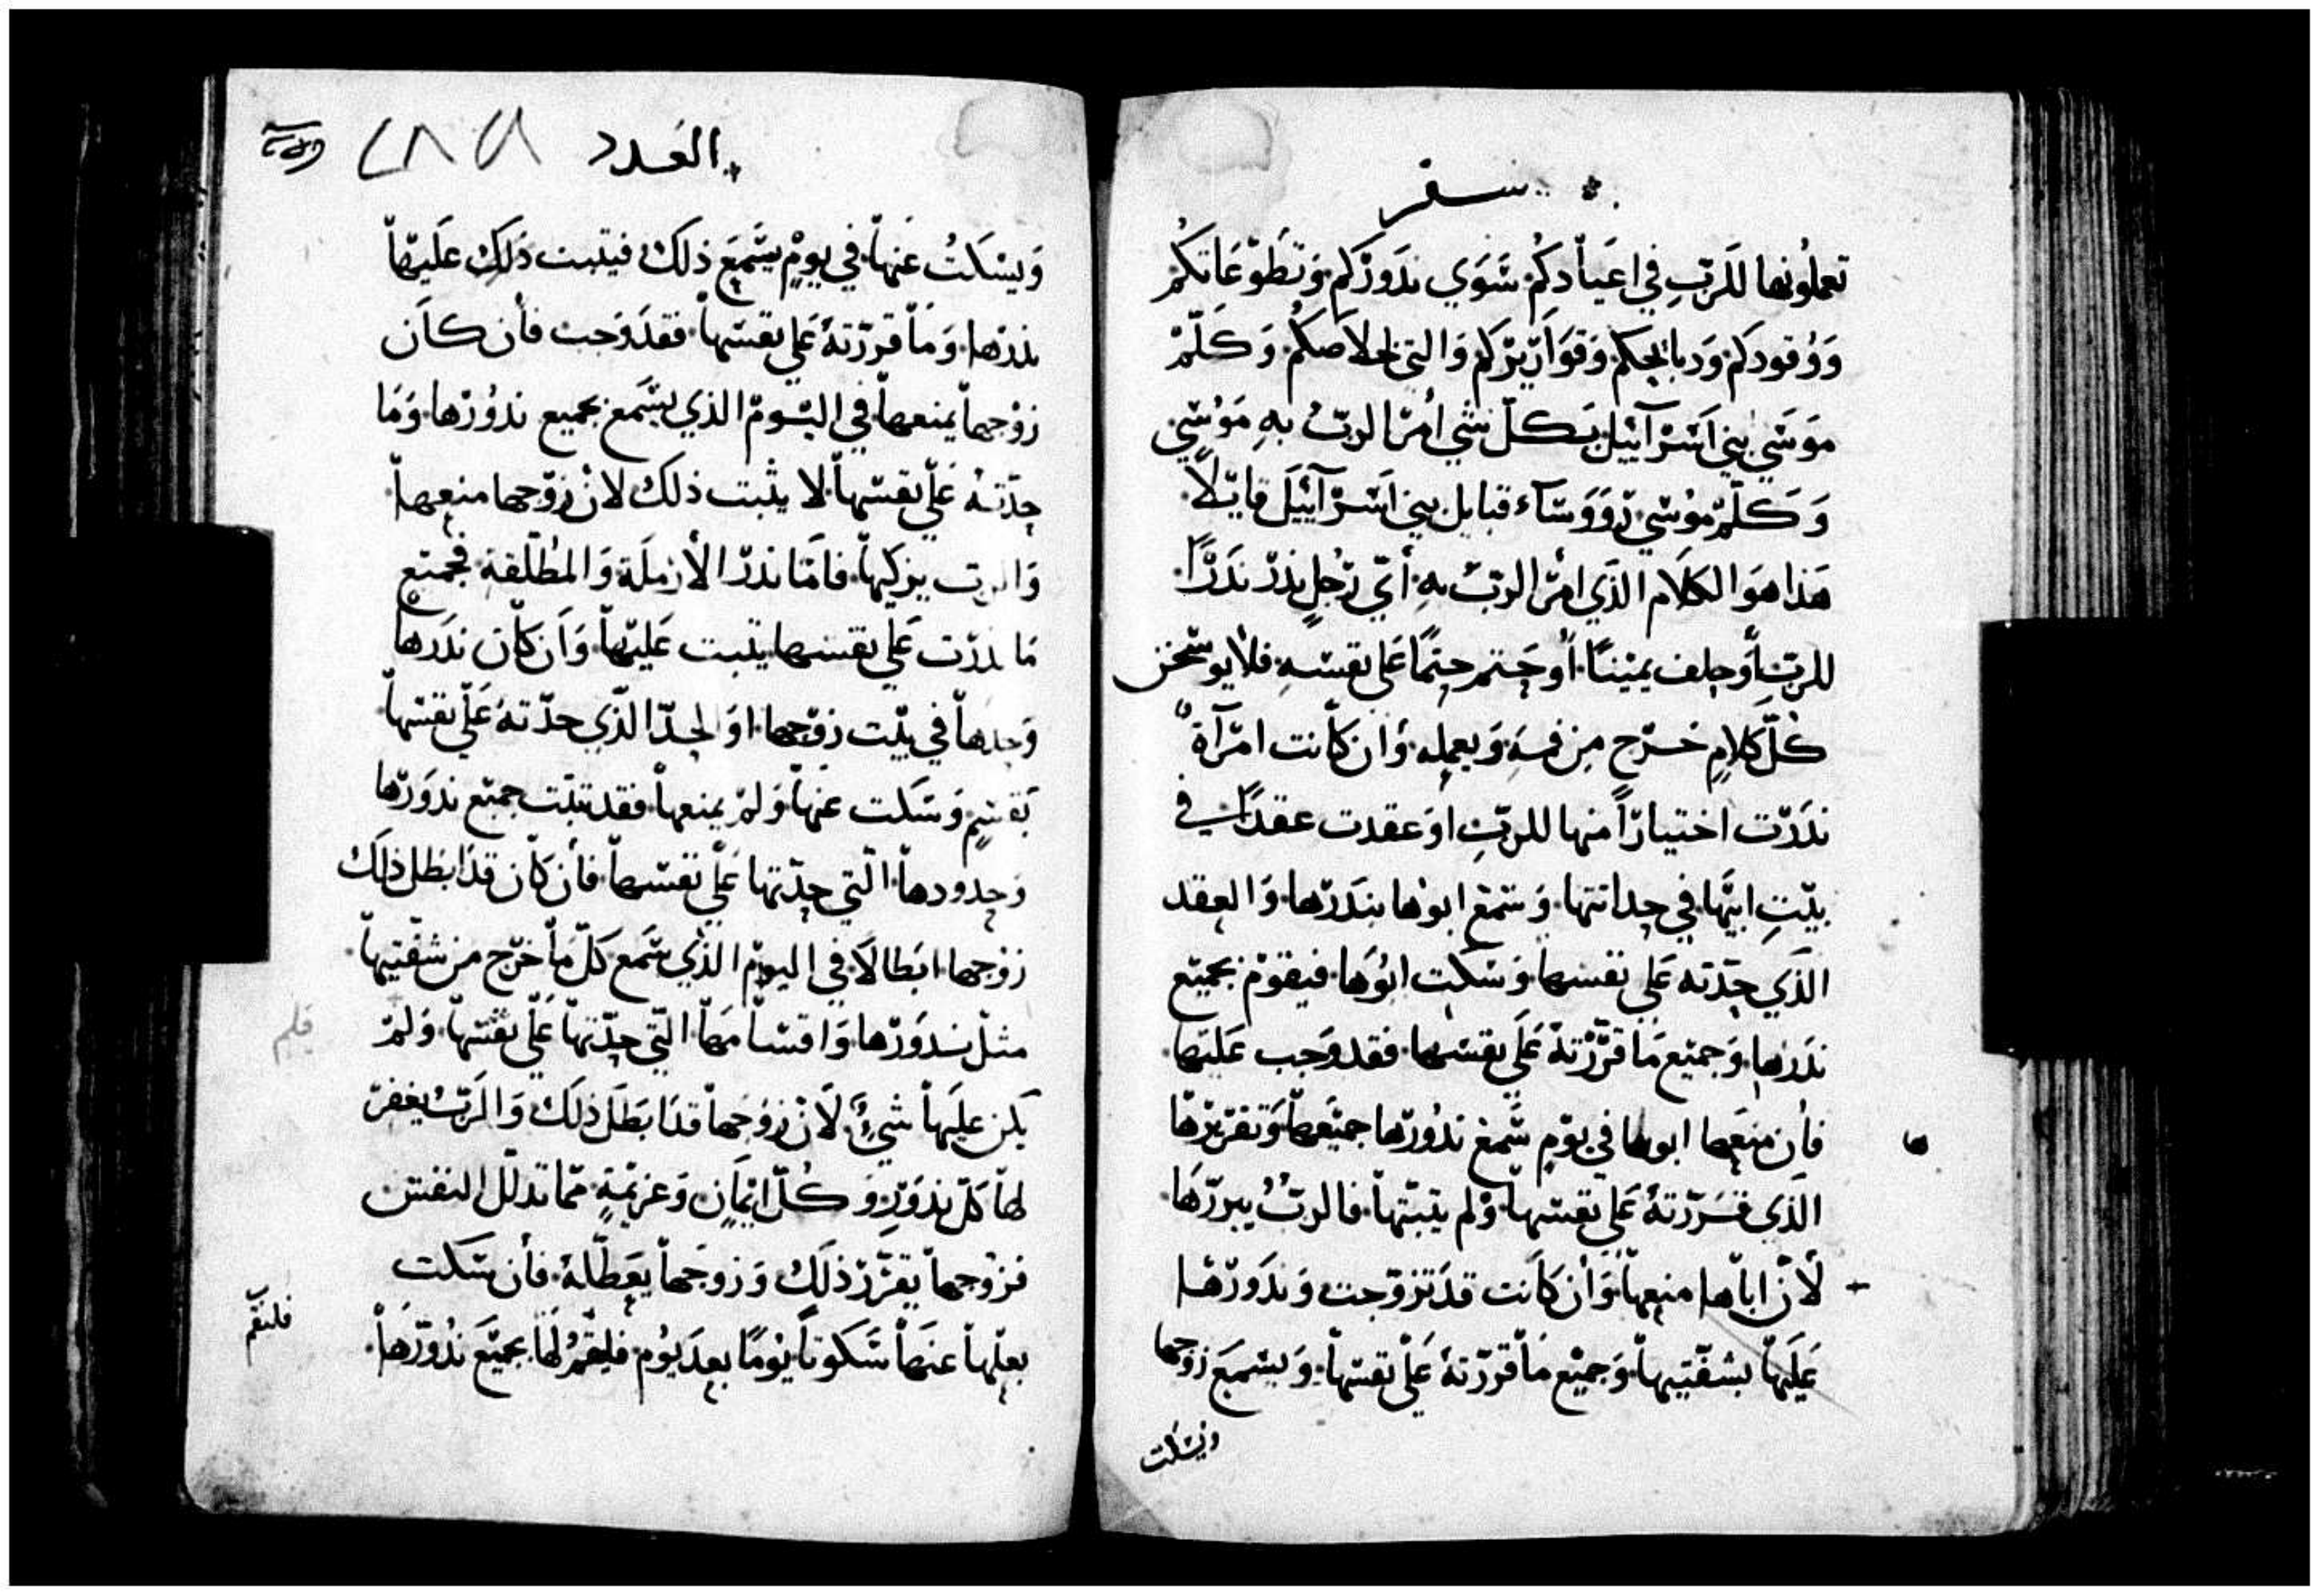 سفر
تعملونها للرب في اعيادكم سوي ندوركم وتطوعاتكم
ووقودكم ودبايحكم وقواريركم والتي لخلاصكم وكلم
موسي بني اسرآييل بكل شي امر الرب به موسي
وكلم موسي رووسآء قبايل بني اسرآييل قايلاً
هذا هو الكلام الذي امر الرب به أي رجل نذر ندراً
للرب أو حلف يميناً أو حتم حتماً علي نفسه فلا يوسخن
كل كلام خرج من فمه ويعمله وان كانت امرآة
ندرت اختياراً منها للرب او عقدت عقداً في
بيت ابيها في حداثتها وسمع ابوها بندرها والعقد
الذي حدته علي نفسها وسكت ابوها فيقوم بجميع
ندرها وجميع ما قررته علي نفسها فقد وجب عليها
فان منعها ابوها في يوم سمع ندورها جميعها وتقريرها
الذي قررته علي نفسها ولم يثبتها فالرب يبررها
لأن اباها منعها وأن كانت قد تزوجت وندورها
عليها بشفتيها وجميع ما قررته علي نفسها ويسمع زوجها
ويسكت
العدد ٢٨٨
ويسكت عنها في يوم يسمع ذلك فيثبت ذلك عليها
ندرها وما قررته علي نفسها فقد وجبت فأن كان
زوجها يمنعها في اليوم الذي يسمع بجميع ندورها وما
حدته علي نفسها لا يثبت ذلك لان زوجها منعها
والرب يزكيها فاما ندر الأرملة والمطلقة فجميع
ما ندرت علي نفسها يثبت عليها وأن كان ندرها
وحدها في بيت زوجها او الحد الذي حدته علي نفسها
بقسم وسكت عنها ولم يمنعها فقد تبت جميع ندورها
وحدودها التي حدتها علي نفسها فأن كان قد ابطل ذلك
زوجها ابطالاً في اليوم الذي سمع كل ما خرج من شفتيها
مثل ندورها واقسامها التي حدتها علي نفسها ولم
قلم
يكن عليها شيء لأن زوجها قد ابطل ذلك والرب يغفر
لها كل ندور وكل ايمان وعزيمة مما تدلل النفس
فزوجها يقرر ذلك وزوجها يعطله فأن سكت
بعلها عنها سكوتاً يوماً بعد يوم فليقم لها بجميع ندورها
فليقم